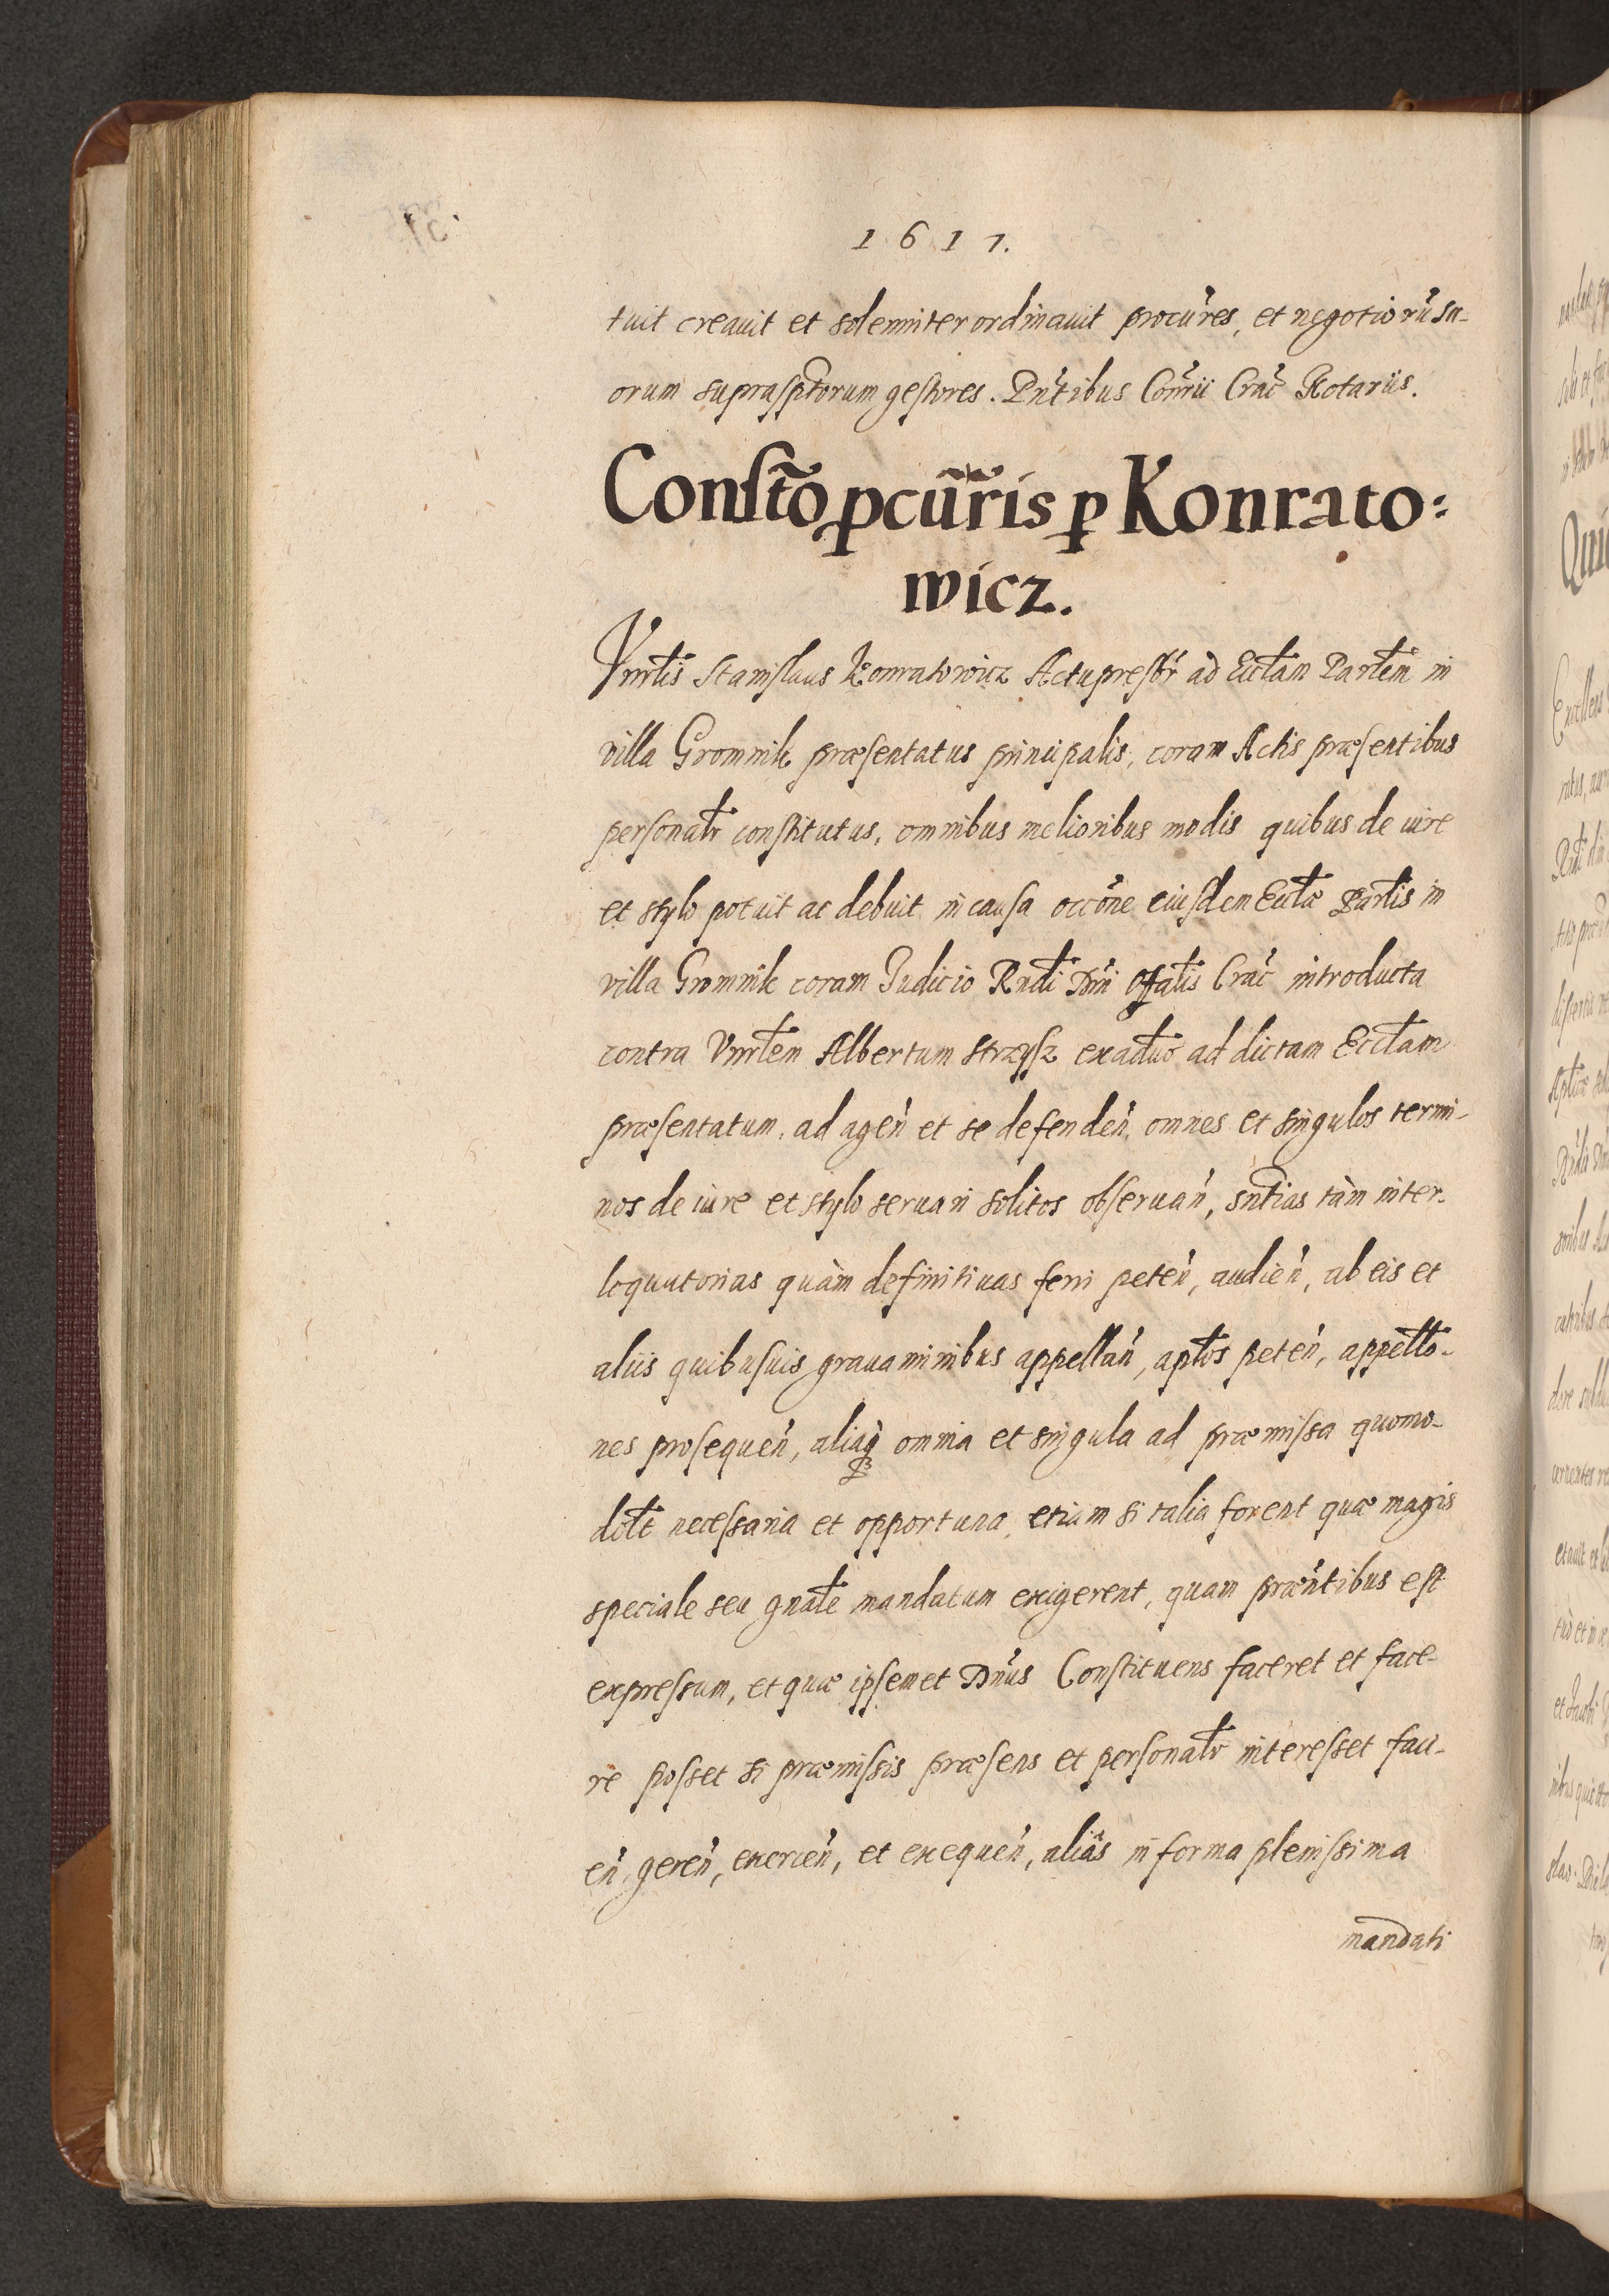 1617.
tuit creauit et solemniter ordinauit procũres, et negotiorũ su-
orum suprasptorum gestores. Pntibus Conrii Crac Notariis.
Constõ pcũris p Konrato:
wicz.
Vnrlis Stanislaus Konratowicz Actupresbr ad Ecclam Parlem in
villa Gromnik præsentatus principalis, coram Actis præsentibus
personalr constitutus, omnibus melioribus modis quibus de iure
et stylo potuit ac debuit in causa occõne eiusdem Ecclæ Parlis in
villa Gromnik coram Judicio Rndi Dni Offalis Crac introducta
contra Vnrlem Albertum Strzysz exaduo ad dictam Ecclam
præsentatum, ad agen et se defenden, omnes et singulos termi-
nos de iure et stylo seruari solitos obseruan, sntias tàm inter-
loquutorias quàm definitiuas ferri peten, audien, ab eis et
aliis quibusuis grauaminibus appellan, aplos peten, appello-
nes prosequen, aliaq omnia et singula ad præmissa quomo-
dolt necessaria et opportuna, etiam si talia forent quæ magis
speciale seu gnale mandatum exigerent, quam præntibus est
expressum, et quæ ipsemet Dnus Constituens faceret et face-
re posset si præmissis præsens et personalr interesset faci-
en, geren, exercen, et exequen, aliâs in forma plenissima
mandati